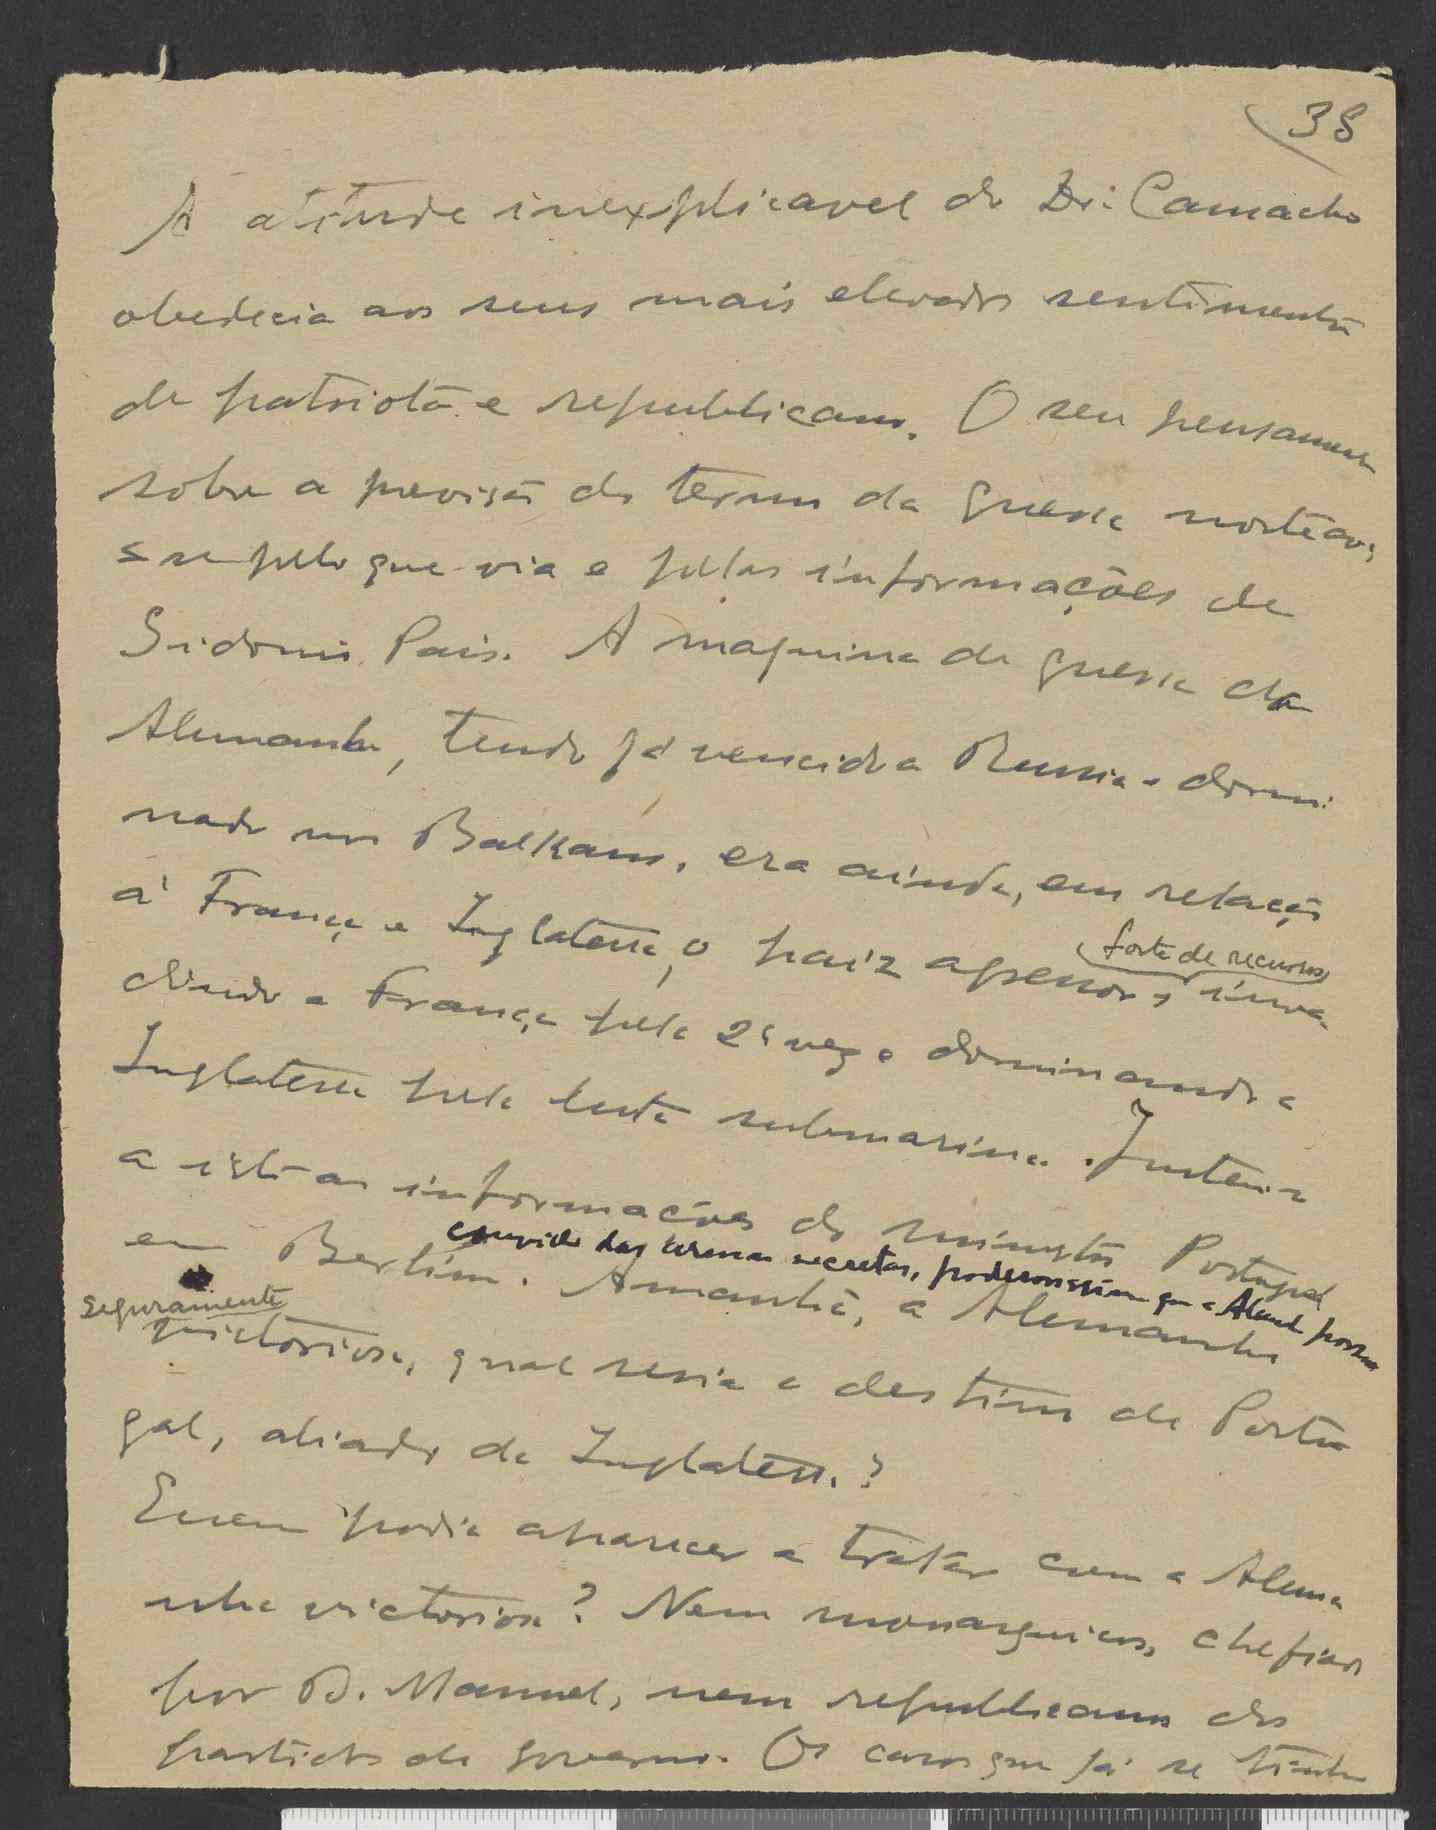 38
A atitude inexplicavel do Dr: Camacho
obedecia aos seus mais elevados sentimentos
de patriota e republicano. O seu pensamento
sobre a previsão do termo da guerra norteava
se pelo que via e pelas informações de
Sidonio Pais. A maquina de guerra da
Alemanha, tendo já vencido a Russia e domi
nado nos Balkans, era ainda, em relação
á França e Inglaterra, o paiz agressor,
forte de recursos,
inva
dindo a França pela 2ª vez e dominando a
Inglaterra pela luta submarina. Juntem-se
a isto as informações do ministro Portugal
em Berlim.
convicto das armas secretas, poderosissimas que a Alemanha possuia
Amanhã, a Alemanha
seguramente
victoriosa, qual seria o destino de Portu
gal, aliado da Inglaterra?
Quem podia aparecer a tratar com a Alema
nha victoriosa? Nem monarquicos, chefiados
por D. Manuel, nem republicanos dos
partidos do governo. Os casos que já se tinham